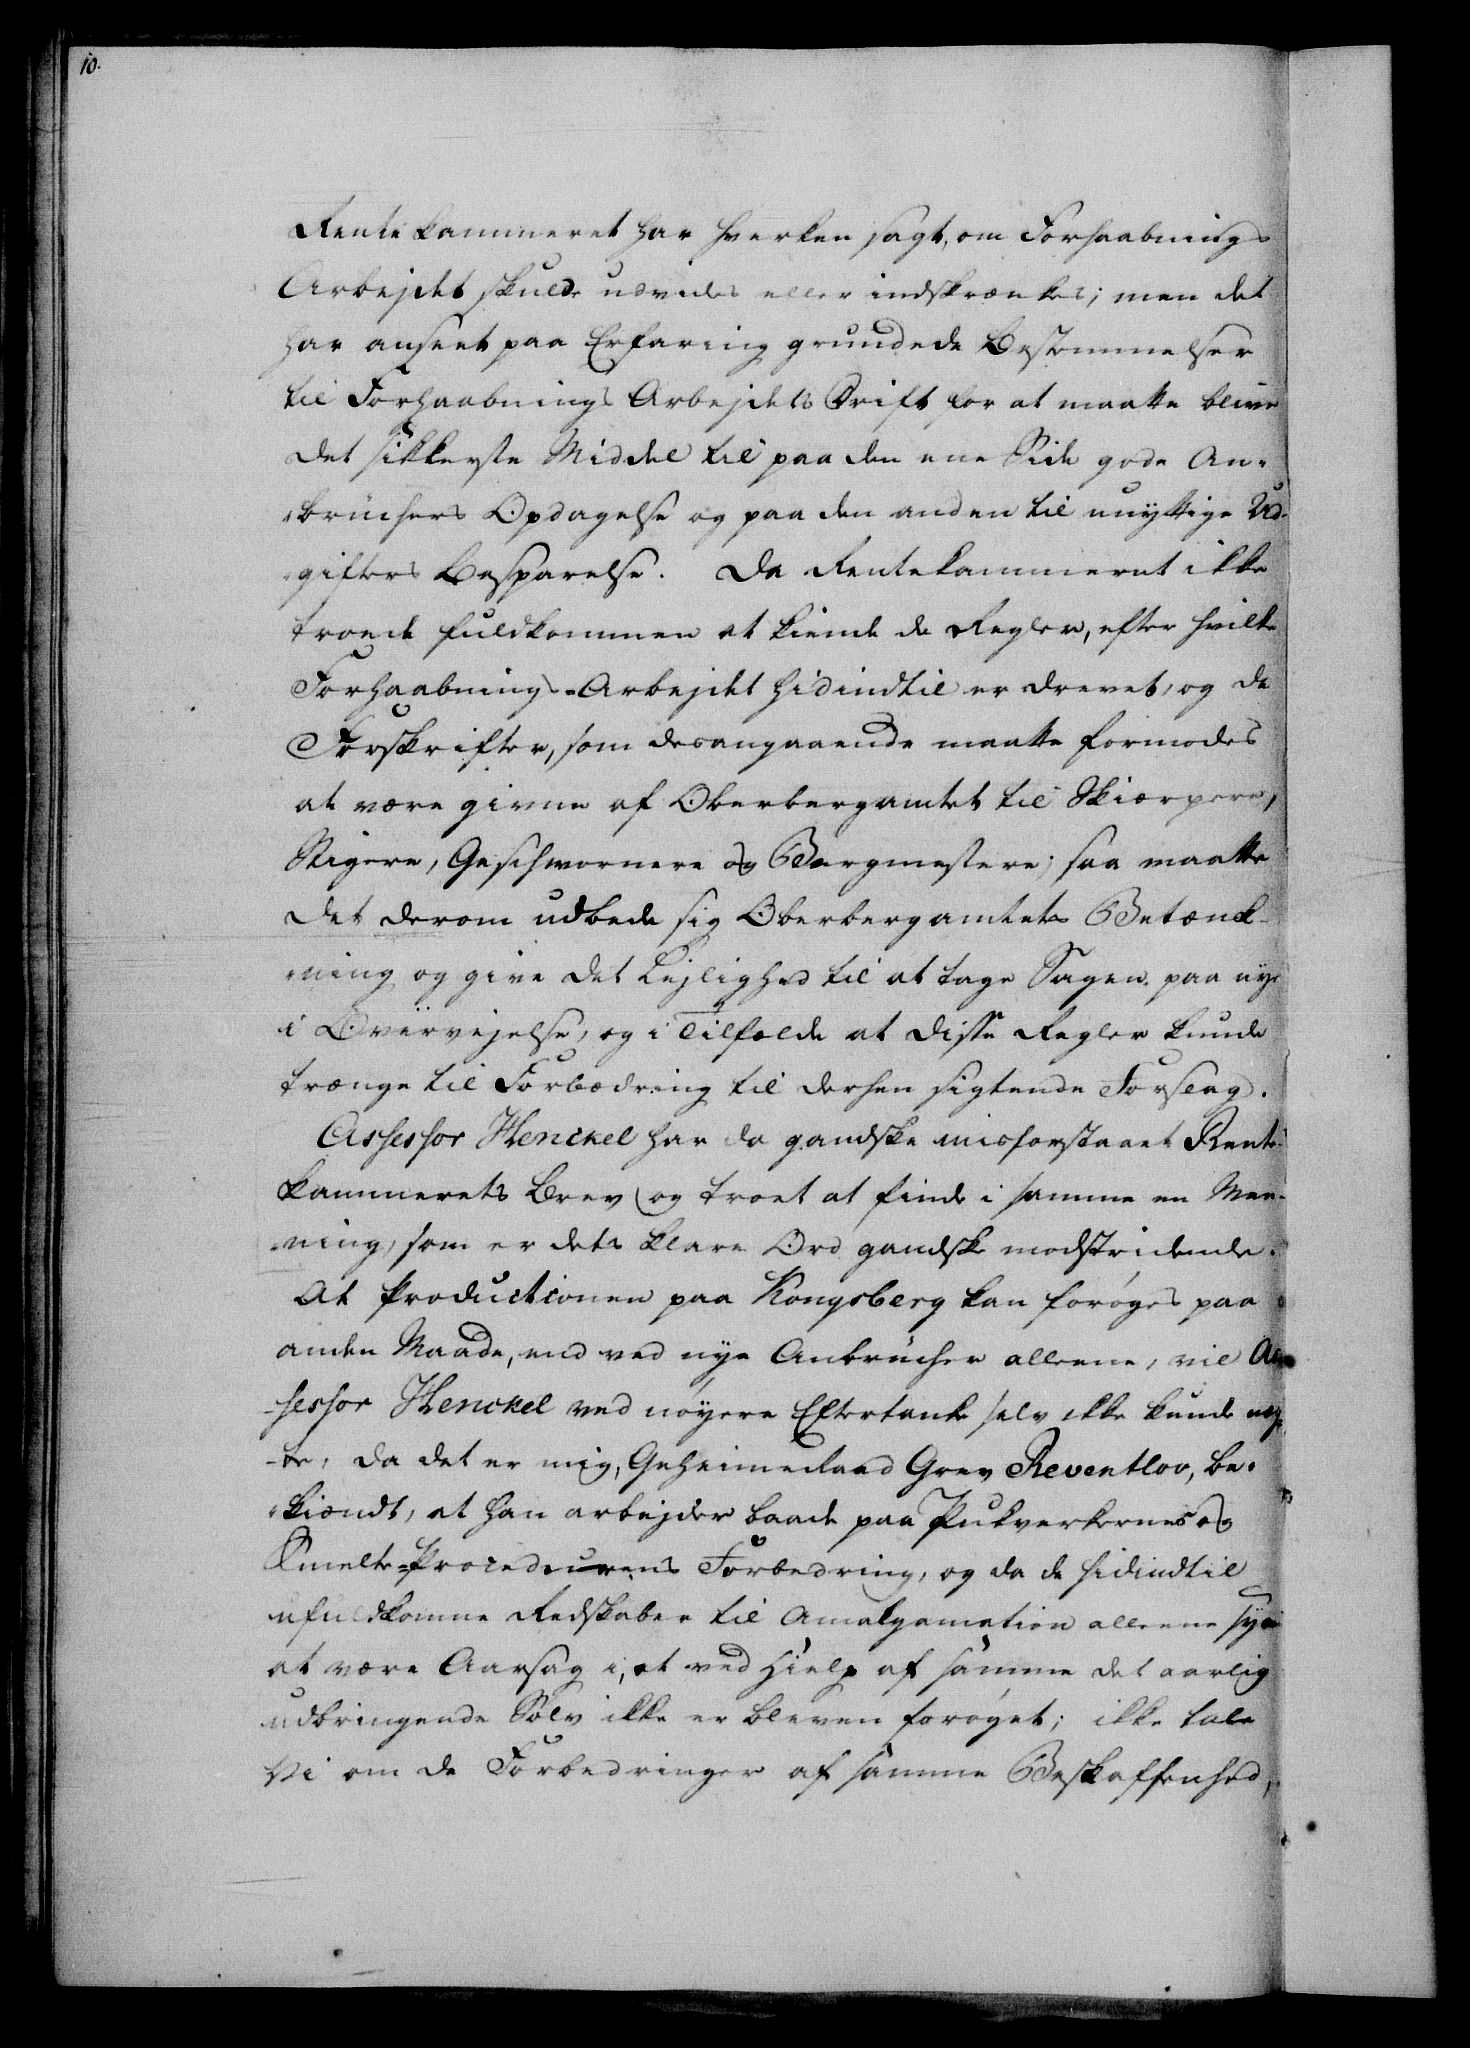 10.
Rentekammeret har hverken sagt, om Forhaabnings
Arbejdet skulde udvides eller indskrænkes; men det
har anseet paa Erfaring grundede Bestemmelser
til Forhaabnings Arbejdets Drift for at maatte blive
det sikkerste Middel til paa den ene Side gode An-
-brüchers Opdagelse og paa den anden til unyttige Ud-
-gifters Besparelse. Da Rentekammeret ikke
troede fuldkommen at kiende de Regler, efter hvilke
Forhaabnings-Arbejdet hidindtil er drevet, og de
Forskrifter, som desangaaende maatte formodes
at være givne af Oberbergamtet til Skiærpere,
Stigere, Geschwornere og Bergmestere; saa maatte
det derom udbede sig Oberbergamtets Betænk-
-ning og give det Lejlighed til at tage Sagen paa nye
i Overvejelse, og i Tilfælde at disse Regler kunde
trænge til Forbædring til derhen sigtende Forslag.
Assessor Henckel har da gandske misforstaaet Rente-
kammerets Brev og troet at finde i samme en Mee-
-ning, som er dets klare Ord gandske modstridende.
At Productionen paa Kongsberg kan forøges paa
anden Maade, end ved nye Anbrücher alleene, vil As-
-sessor Henckel ved nøyere Eftertanke selv ikke kunde næg-
-te, da det er mig, Geheimeraad Grev Reventlov, be-
-kiændt, at han arbejder baade paa Pukverkernes og
Smelte-Procedurens Forbedring, og da de hidindtil
ufuldkomne Redskaber til Amalgamation alleene synes
at være Aarsag i, at ved Hielp af samme det aarlig
udbringende Sølv ikke er bleven forøget; ikke tale
Vi om de Forbedringer af samme Beskaffenhed,